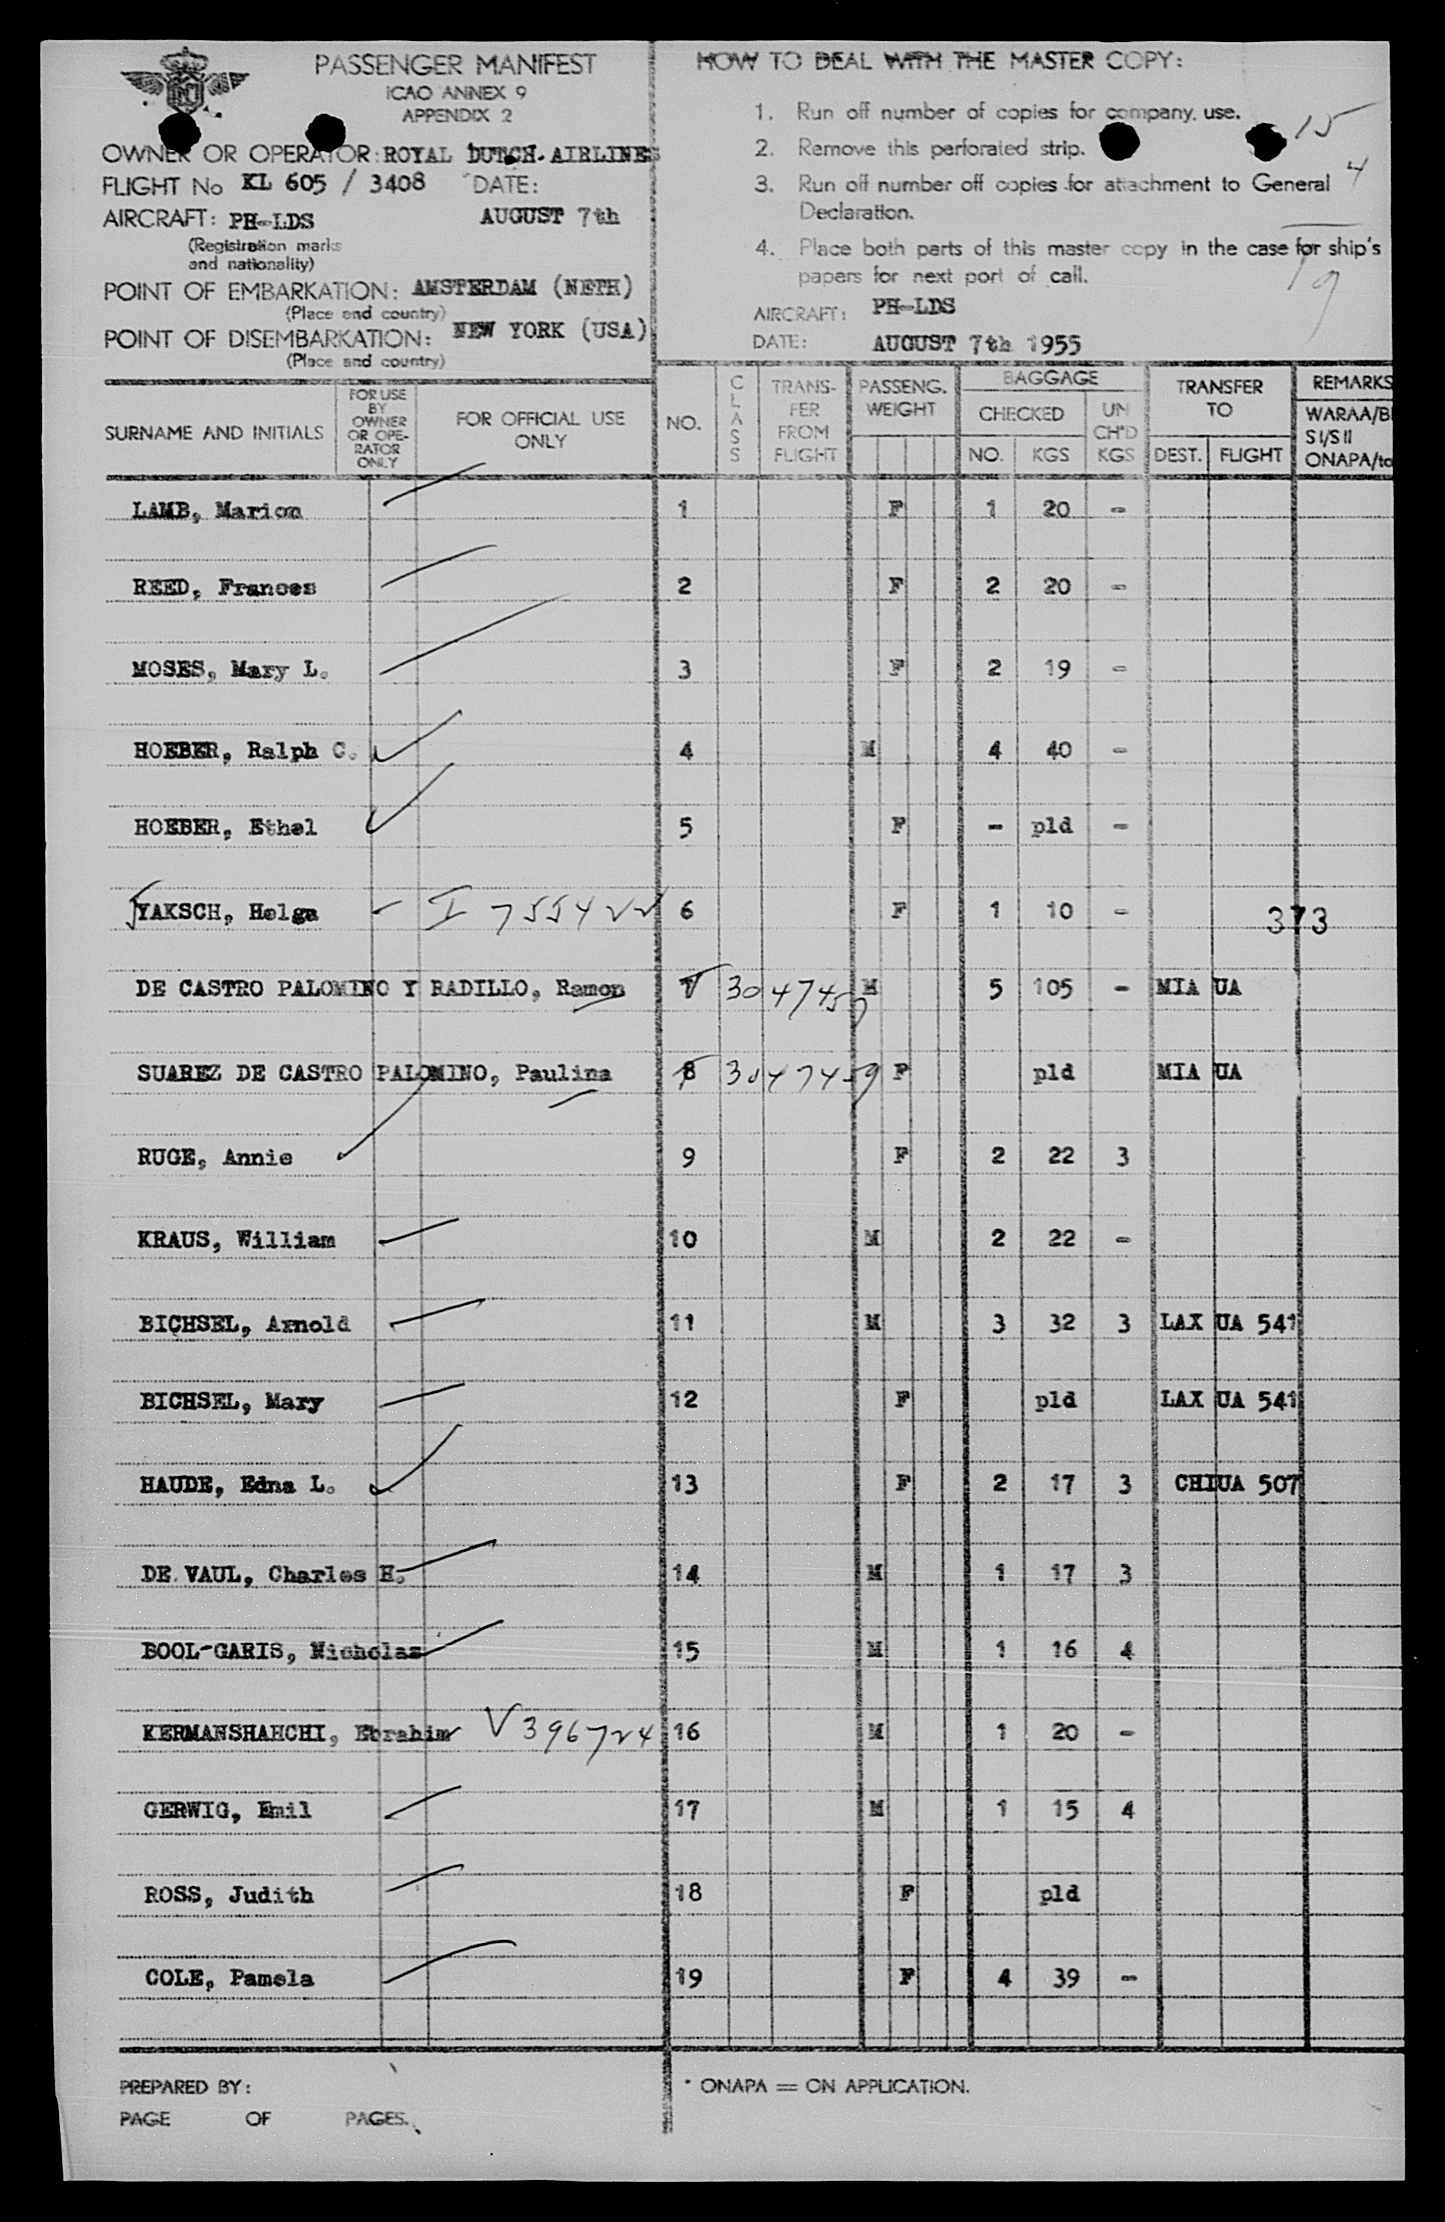 PASSENGER MANIFEST
ICAO ANNEX 9
APPENDIX 2
OWNER OR OPERATOR: ROYAL DUTCH AIRLINES
FLIGHT No KL 605 / 3408 DATE:
AIRCRAFT: PH-LDS AUGUST 7th
(Registration marks
and nationality)
POINT OF EMBARKATION: AMSTERDAM (NETH)
(Place and country)
POINT OF DISEMBARKATION: NEW YORK (USA)
(Place and country)
HOW TO DEAL WITH THE MASTER COPY:
1. Run off number of copies for company use.
2. Remove this perforated strip.
3. Run off number off copies for attachment to General
Declaration.
4. Place both parts of this master copy in the case for ship's
papers for next port of call.
15
4
19
AIRCRAFT: PH-LDS
DATE: AUGUST 7th 1955
SURNAME AND INITIALS
FOR USE
BY
OWNER
OR OPE-
RATOR
ONLY
FOR OFFICIAL USE
ONLY
NO.
CLASS
TRANS-
FER
FROM
FLIGHT
PASSENG.
WEIGHT
BAGGAGE
CHECKED
NO. KGS
UN
CH'D
KGS
TRANSFER
TO
DEST. FLIGHT
REMARKS
WARAA/B
SI/SII
ONAPA/to
LAMB, Marion 1 F 1 20 -
REED, Frances 2 F 2 20 -
MOSES, Mary L. 3 F 2 19 -
HOEBER, Ralph C. 4 M 4 40 -
HOEBER, Ethel 5 F - pld -
JYAKSCH, Helga I 755422 6 F 1 10 - 373
DE CASTRO PALOMINO Y RADILLO, Ramon 7 M 5 105 - MIA UA
SUAREZ DE CASTRO PALOMINO, Paulina 8 3047459 F pld MIA UA
RUGE, Annie 9 F 2 22 3
KRAUS, William 10 M 2 22 -
BICHSEL, Arnold 11 M 3 32 3 LAX UA 541
BICHSEL, Mary 12 F pld LAX UA 541
HAUDE, Edna L. 13 F 2 17 3 CHI UA 507
DE VAUL, Charles H. 14 M 1 17 3
BOOL-GARIS, Nicholas 15 M 1 16 4
KERMANSHAHCHI, Ebrahim V 396724 16 M 1 20 -
GERWIG, Emil 17 M 1 15 4
ROSS, Judith 18 F pld
COLE, Pamela 19 F 4 39 -
PREPARED BY:
PAGE OF PAGES.
* ONAPA = ON APPLICATION.